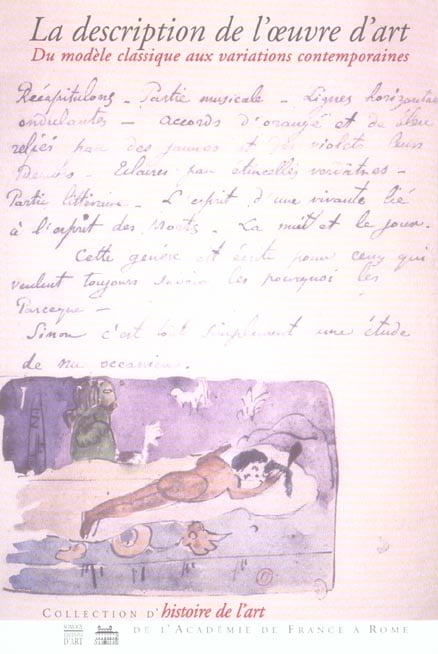 La description de l'œuvre d'art
Du modèle classique aux variations contemporaines
Récapitulons – Partie musicale – Lignes horizontales
ondulantes – accords d'orangé et de bleu
reliés par des jaunes et des violets leurs
Dérivés – Eclairés par étincelles verdâtres –
Partie littéraire – L'esprit d'une vivante lié
à l'esprit des Morts. – La nuit et le jour.
Cette genèse est écrite pour ceux qui
veulent toujours savoir les pourquoi les
Parceque –
Sinon c'est tout simplement une étude
de nu océanien.
COLLECTION D'histoire de l'art
SOMOGY ÉDITIONS D'ART DE L'ACADÉMIE DE FRANCE À ROME